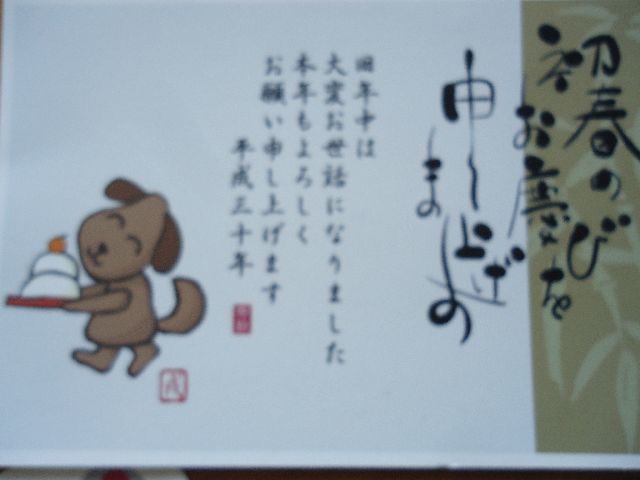 初春の
お慶びを
申し上げ
ます
旧年中は
大変お世話になりました
本年もよろしく
お願い申し上げます
平成三十年
戌